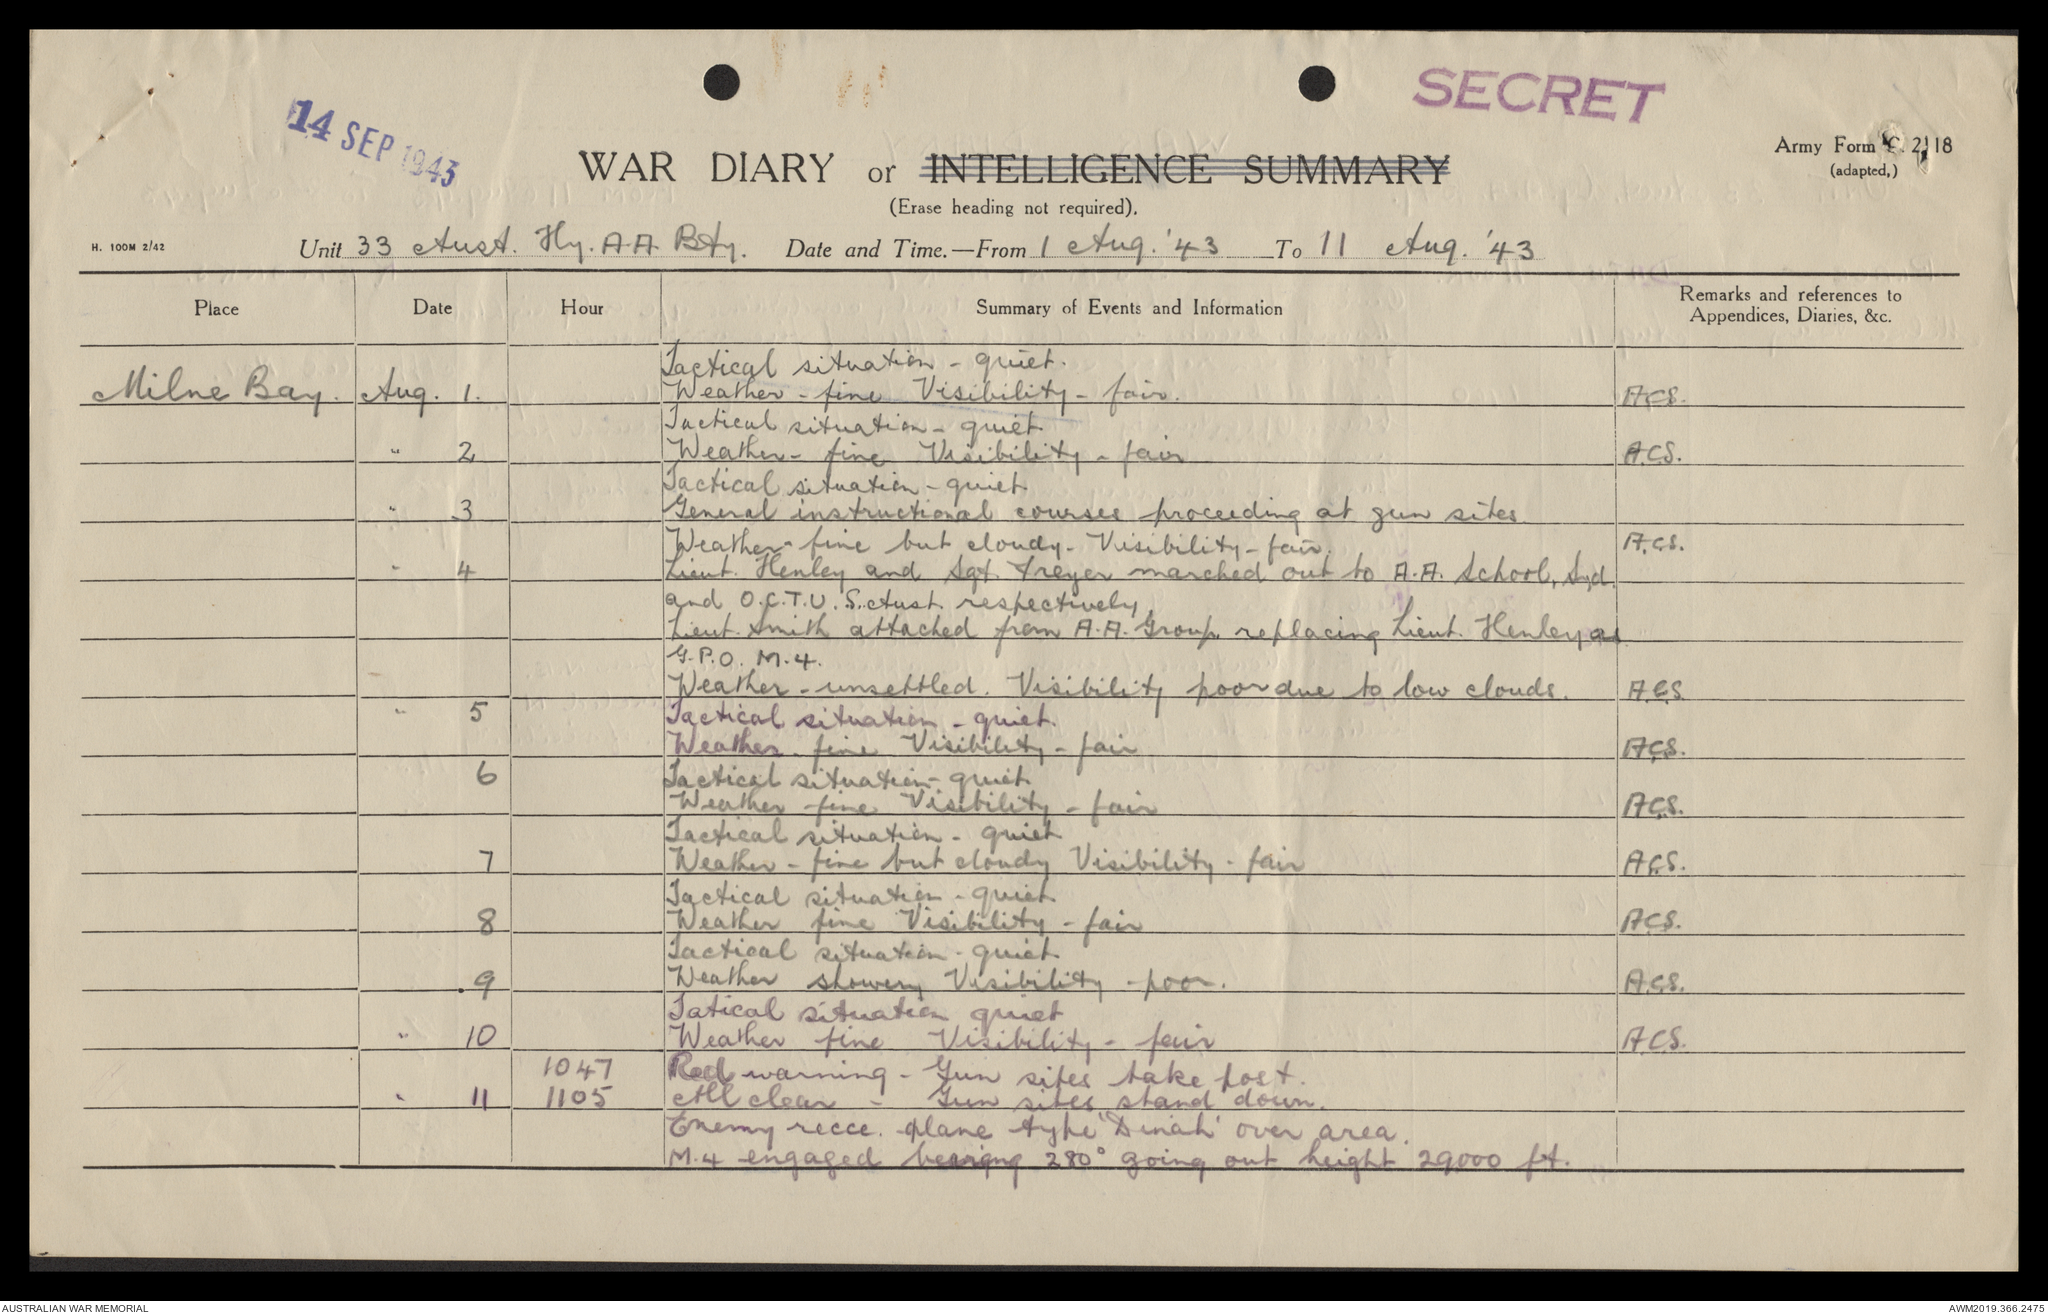 SECRET
14 SEP 1943
Army Form C. 2118
(adapted,)
WAR DIARY or INTELLIGENCE SUMMARY
(Erase heading not required).
H. 100M 2/42
Unit 33 Aust. Hy. A.A. Bty. Date and Time.—From 1 Aug. '43 To 11 Aug. '43
Place Date Hour Summary of Events and Information Remarks and references to Appendices, Diaries, &c.
Tactical situation - quiet.
Milne Bay. Aug. 1. Weather - fine Visibility - fair. A.C.S.
Tactical situation - quiet
" 2 Weather - fine Visibility - fair A.C.S.
Tactical situation - quiet
" 3 General instructional courses proceeding at gun sites.
Weather - fine but cloudy - Visibility - fair. A.C.S.
" 4 Lieut. Henley and Sgt. Freyer marched out to A.A. School, Syd.
and O.C.T.U. S. Aust. respectively.
Lieut. Smith attached from A.A. Group. replacing Lieut. Henley as
G.P.O. M.4.
Weather - unsettled. Visibility poor due to low clouds. A.C.S.
" 5 Tactical situation - quiet.
Weather - fine Visibility - fair A.C.S.
6 Tactical situation - quiet
Weather - fine Visibility - fair A.C.S.
Tactical situation - quiet
7 Weather - fine but cloudy Visibility - fair A.C.S.
Tactical situation - quiet
8 Weather fine Visibility - fair A.C.S.
Tactical situation - quiet
9 Weather showery Visibility - poor. A.C.S.
Tatical situation quiet
" 10 Weather fine Visibility - fair A.C.S.
1047 Red warning - Gun sites take post.
" 11 1105 All clear - Gun sites stand down.
Enemy recce. plane type 'Dinah' over area.
M.4 engaged bearing 280° going out height 29000 ft.
AUSTRALIAN WAR MEMORIAL
AWM2019.366.2475